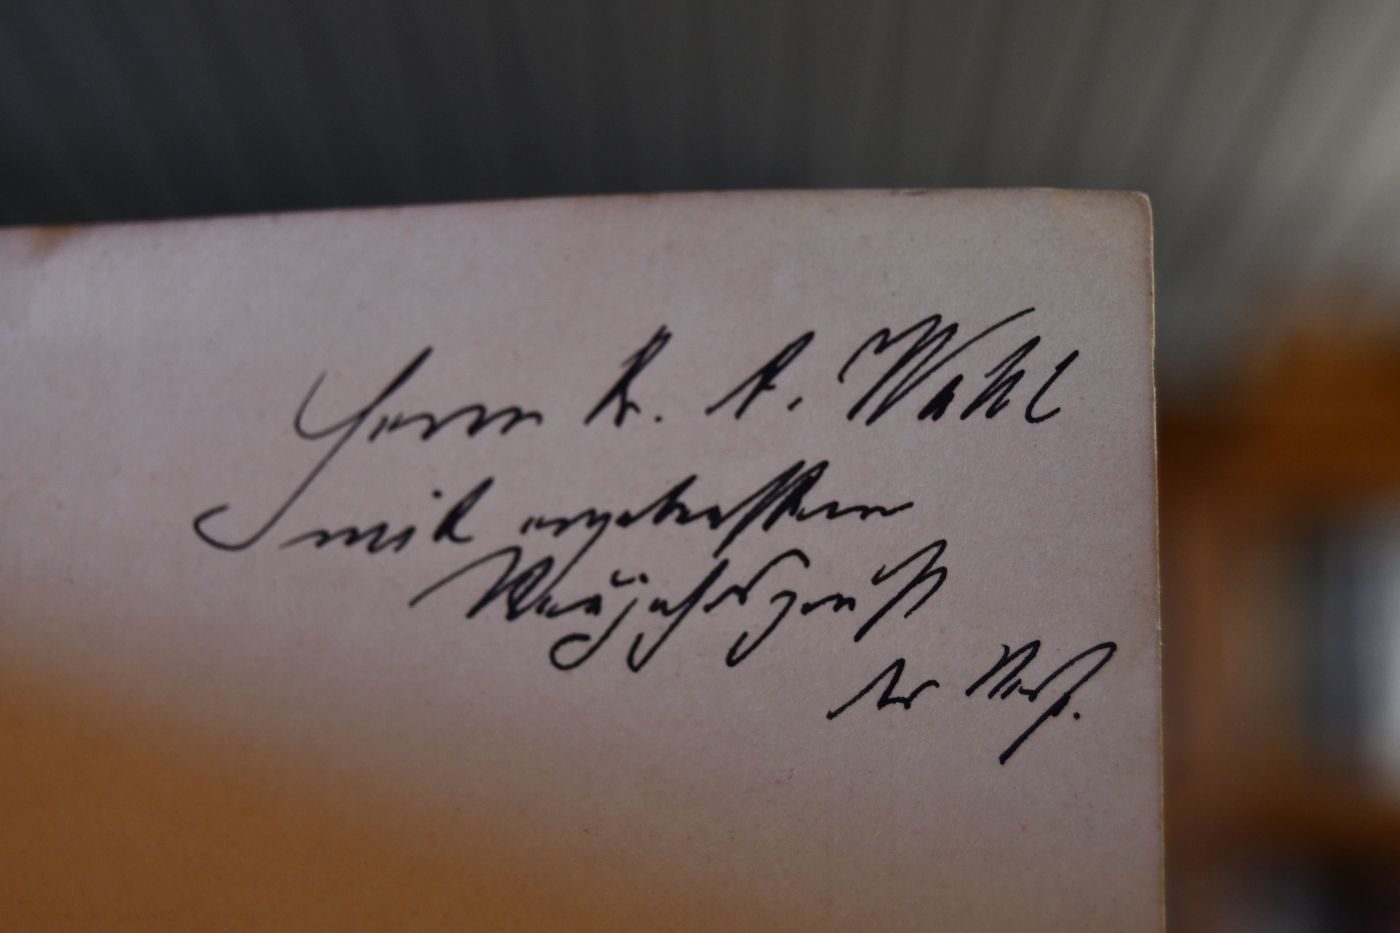 Herrn R. A. Wahl
mit ergebensten
Neujahrsgruß
der Verf.